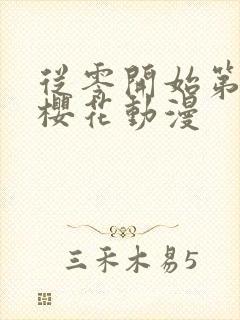 從零開始第
櫻花動漫
三禾木易5